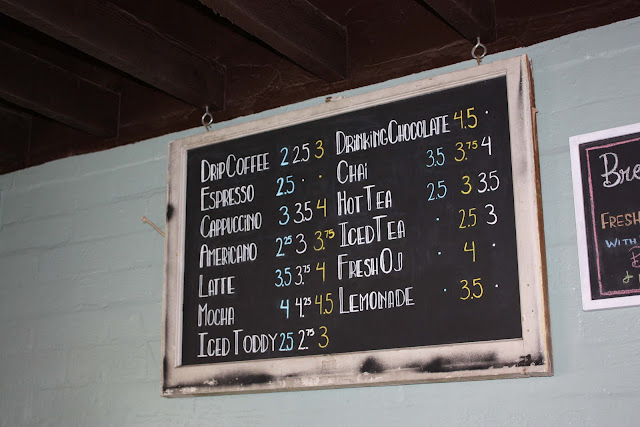 DRIP COFFEE 2 2.5 3
ESPRESSO 2.5 · ·
CAPPUCCINO 3 3.5 4
AMERICANO 2.25 3 3.75
LATTE 3.5 3.75 4
MOCHA 4 4.25 4.5
ICED TODDY 2.5 2.75 3
DRINKING CHOCOLATE 4.5 ·
CHAI 3.5 3.75 4
HOT TEA 2.5 3 3.5
ICED TEA · 2.5 3
FRESH OJ · 4 ·
LEMONADE · 3.5 ·
Bre
FRESH
WITH